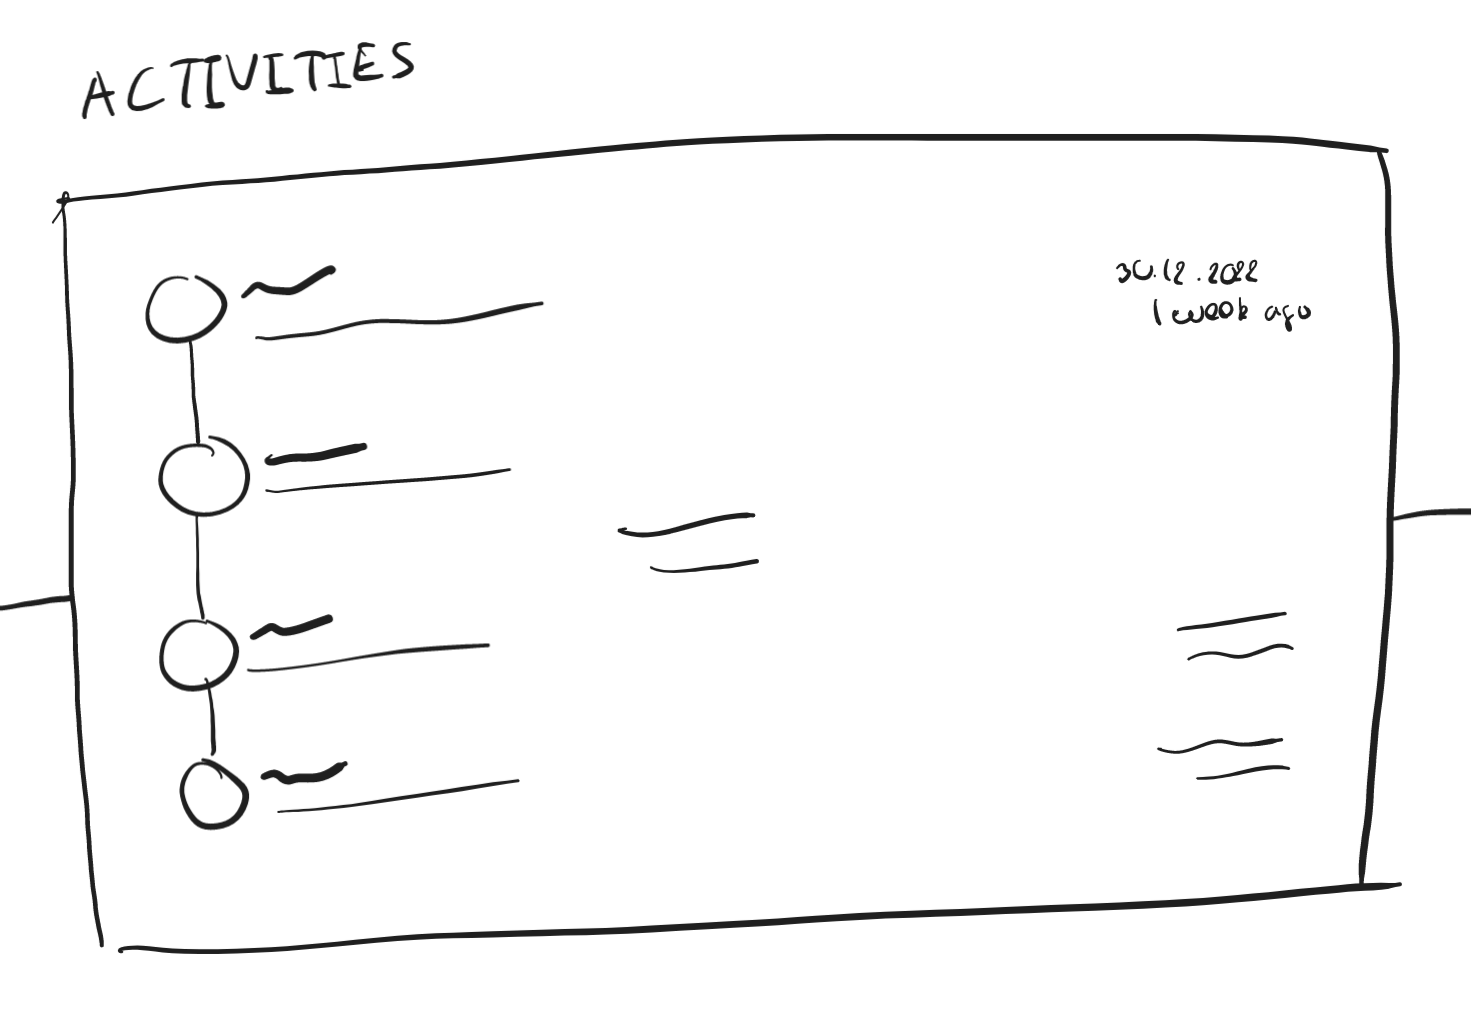 ACTIVITIES
30.12.2022
1 week ago